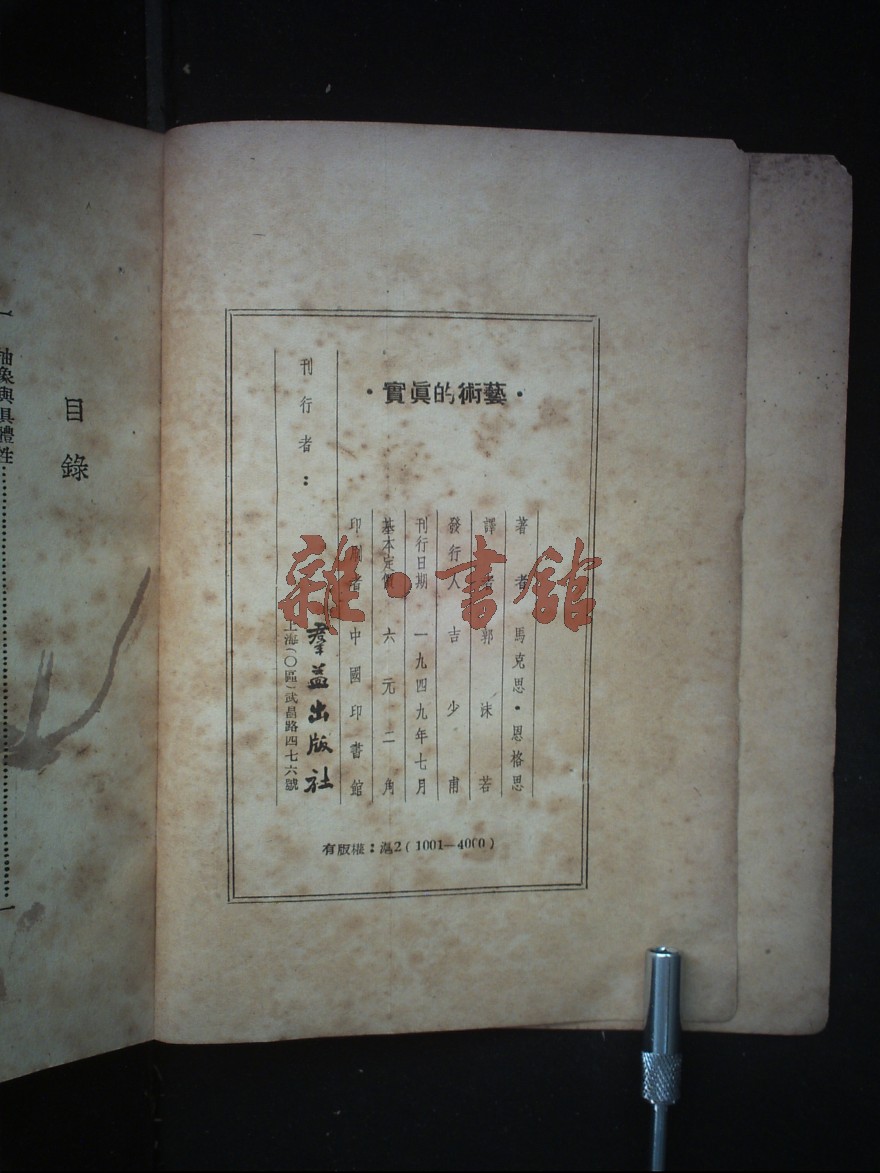 ·藝術的眞實·
著者 馬克思·恩格思
譯者 郭沫若
發行人 吉少甫
刊行日期 一九四九年七月
基本定價 六元二角
印刷者 中國印書館
刊行者：
羣益出版社
上海(〇區)武昌路四七六號
有版權：滬2(1001—4000)
雜·書館
目錄
抽象與具體性